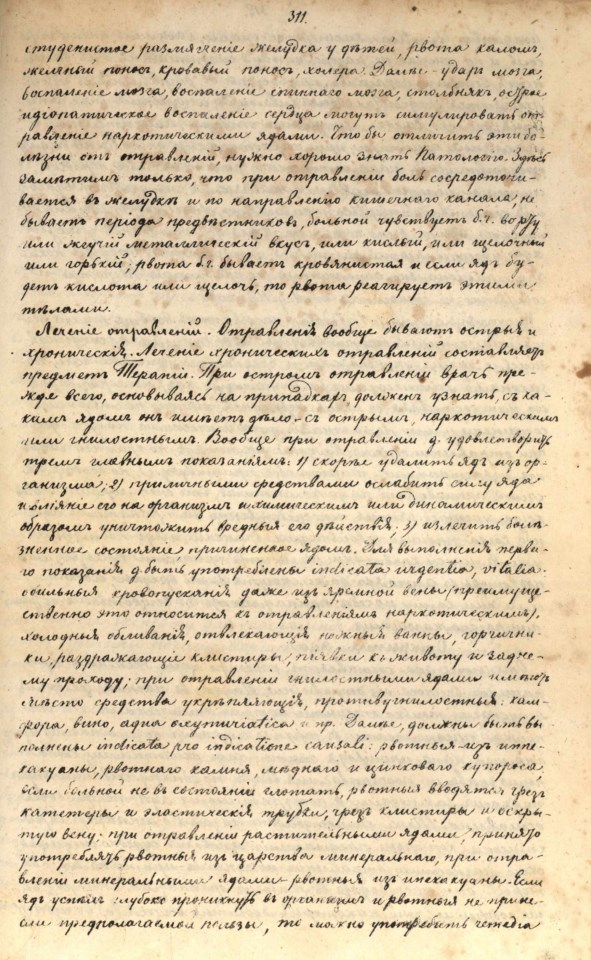 311.
студенистое размягченіе желудка у дѣтей, рвота каломъ,
желчный поносъ, кровавый поносъ, холера. Далѣе - ударъ мозга,
воспаленіе мозга, воспаленіе спиннаго мозга, столбнякъ, острое
идіопатическое воспаленіе сердца могутъ симулировать от-
равленіе наркотическими ядами. Что бы отличить эти бо-
лѣзни отъ отравленій, нужно хорошо знать Патологію. Здѣсь
замѣтимъ только, что при отравленіи боль сосредоточи-
вается въ желудкѣ и по направленію кишечнаго канала, не
бываетъ періода предвѣстниковъ, больной чувствуетъ б.ч. во рту
или жгучій металлическій вкусъ, или кислый, или щелочный
или горькій; рвота б.ч. бываетъ кровянистая и если ядъ бу-
детъ кислота или щелочь, то рвота реагируетъ этими
тѣлами.
Леченіе отравленій. Отравленія вообще бываютъ острыя и
хроническія. Леченіе хроническихъ отравленій составляетъ
предметъ Терапіи. При остромъ отравленіи врачъ пре-
жде всего, основываясь на припадкахъ, долженъ узнать, съ ка-
кимъ ядомъ онъ имѣетъ дѣло - съ острымъ, наркотическимъ
или гнилостнымъ. Вообще при отравленіи д. удовлетворить
тремъ главнымъ показаніямъ: 1) скорѣе удалить ядъ изъ ор-
ганизма; 2) приличными средствами ослабить силу яда
и вліяніе его на организмъ и химическимъ или динамическимъ
образомъ уничтожить вредныя его дѣйствія; 3) излечить болѣ-
зненное состояніе причиненное ядомъ. Для выполненія перва-
го показанія д. быть употреблены indicata urgentia, vitalia.
обильныя кровопусканія даже изъ яремной вены (преимуще-
ственно это относится къ отравленіямъ наркотическимъ),
холодныя обливанія, отвлекающія ножныя ванны, горчични-
ки, раздражающіе клистиры, піявки къ животу и задне-
му проходу; при отравленіи гнилостными ядами имѣютъ
мѣсто средства укрѣпляющія, противугнилостныя: кам-
фора, вино, aqua oxymuriatica и пр. Далѣе, должны быть вы-
полнены indicata pro indicatione causali: рвотныя - изъ ипе-
какуаны, рвотнаго камня, мѣднаго и цинковаго купороса,
если больной не въ состояніи глотать, рвотныя вводятся чрезъ
катетеры и эластическія трубки, чрезъ клистиры и вскры-
тую вену; при отравленіи растительными ядами, принято
употреблять рвотныя изъ царства минеральнаго, при отра-
вленіи минеральными ядами - рвотныя изъ ипекакуаны. Если
ядъ успѣлъ глубоко проникнуть въ организмъ и рвотныя не прине-
сли предполагаемой пользы, то можно употребить remedia